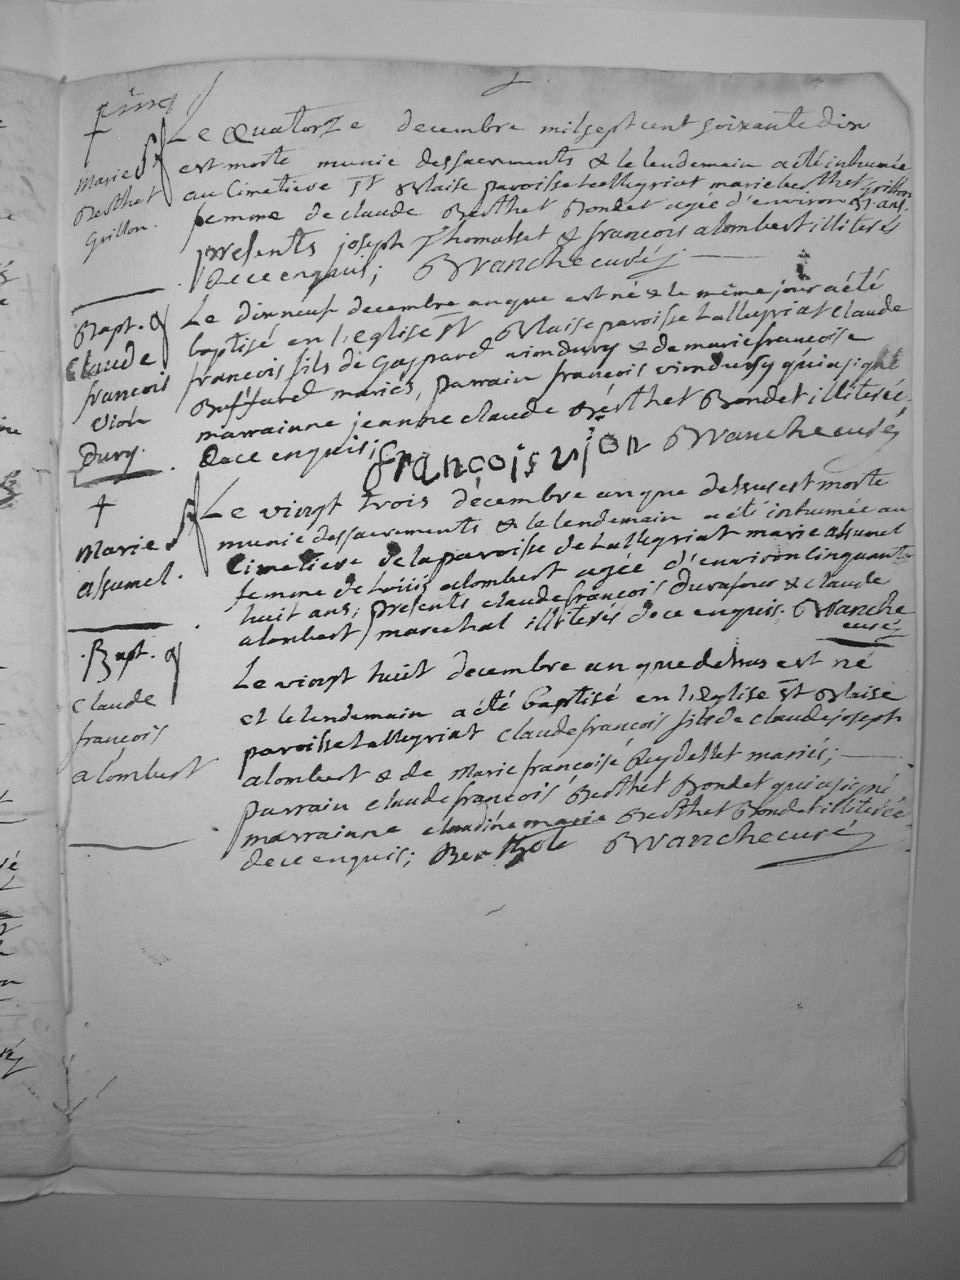 Le Quatorze decembre mil sept cent soixante dix
est morte munie des sacrements & le lendemain a été inhumée
au Cimetiere St Blaise paroisse talleyriat marie berthet Grillon
femme de claude Berthet Bondet agée d'environ 51 ans.
presents joseph Thomasset & francois alombert illiterés
de ce enquis; BVanche curé;
Marie
Berthet
Grillon.
Le dixneuf decembre an que est né & le même jour a été
baptisé en l'Eglise St Blaise paroisse talleyriat Claude
francois fils de Gaspard viondury & de marie francoise
Buffard mariés, parrain francois viondury qui a signé
marrainne jeanne claude Berthet Bondet illiterée.
de ce enquis; françois vion BVanche curé
Bapt.
claude
francois
vion
Dury.
Le vingt trois décembre an que dessus est morte
munie des sacrements & le lendemain a été inhumée au
Cimetiere de la paroisse de talleyriat marie assumel
femme de louis alombert agée d'environ cinquante
huit ans; presents claude francois Durafour & claude
alombert marechal illiterés de ce enquis; BVanche
curé
Marie
assumel.
Le vingt huit decembre an que dessus est né
et le lendemain a été baptisé en l'Eglise St Blaise
paroisse talleyriat claude francois fils de claude joseph
alombert & de Marie francoise Reydellet mariés;
parrain claude francois Berthet Bondet qui a signé
marrainne claudine marie Berthet Bondet illiterée
de ce enquis; Berthet BVanche curé
Bapt.
claude
francois
alombert